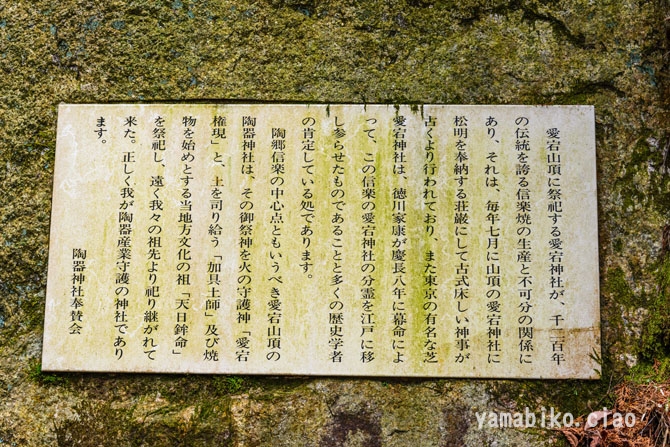 愛宕山頂に祭祀する愛宕神社が、千二百年
の伝統を誇る信楽焼の生産と不可分の関係に
あり、それは、毎年七月に山頂の愛宕神社に
松明を奉納する荘厳にして古式床しい神事が
古くより行われており、また東京の有名な芝
愛宕神社は、徳川家康が慶長八年に幕命によ
って、この信楽の愛宕神社の分霊を江戸に移
し参らせたものであることと多くの歴史学者
の肯定している処であります。
陶郷信楽の中心点ともいうべき愛宕山頂の
陶器神社は、その御祭神を火の守護神「愛宕
権現」と、土を司り給う「加具土師」及び焼
物を始めとする当地方文化の祖「天日鉾命」
を祭祀し、遠く我々の祖先より祀り継がれて
来た。正しく我が陶器産業守護の神社であり
ます。
陶器神社奉賛会
yamabiko.ciao